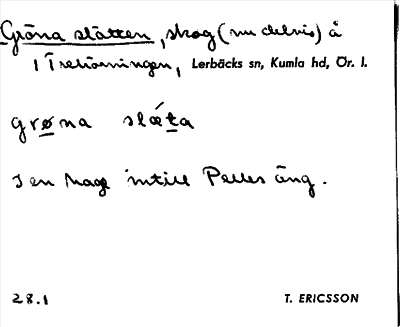 Gröna slätten, skog (nu delvis) å
1 Trehörningen, Lerbäcks sn, Kumla hd, Ör. l.
grøna slǽta
I en hage intill Pelles äng.
28.1 T. ERICSSON